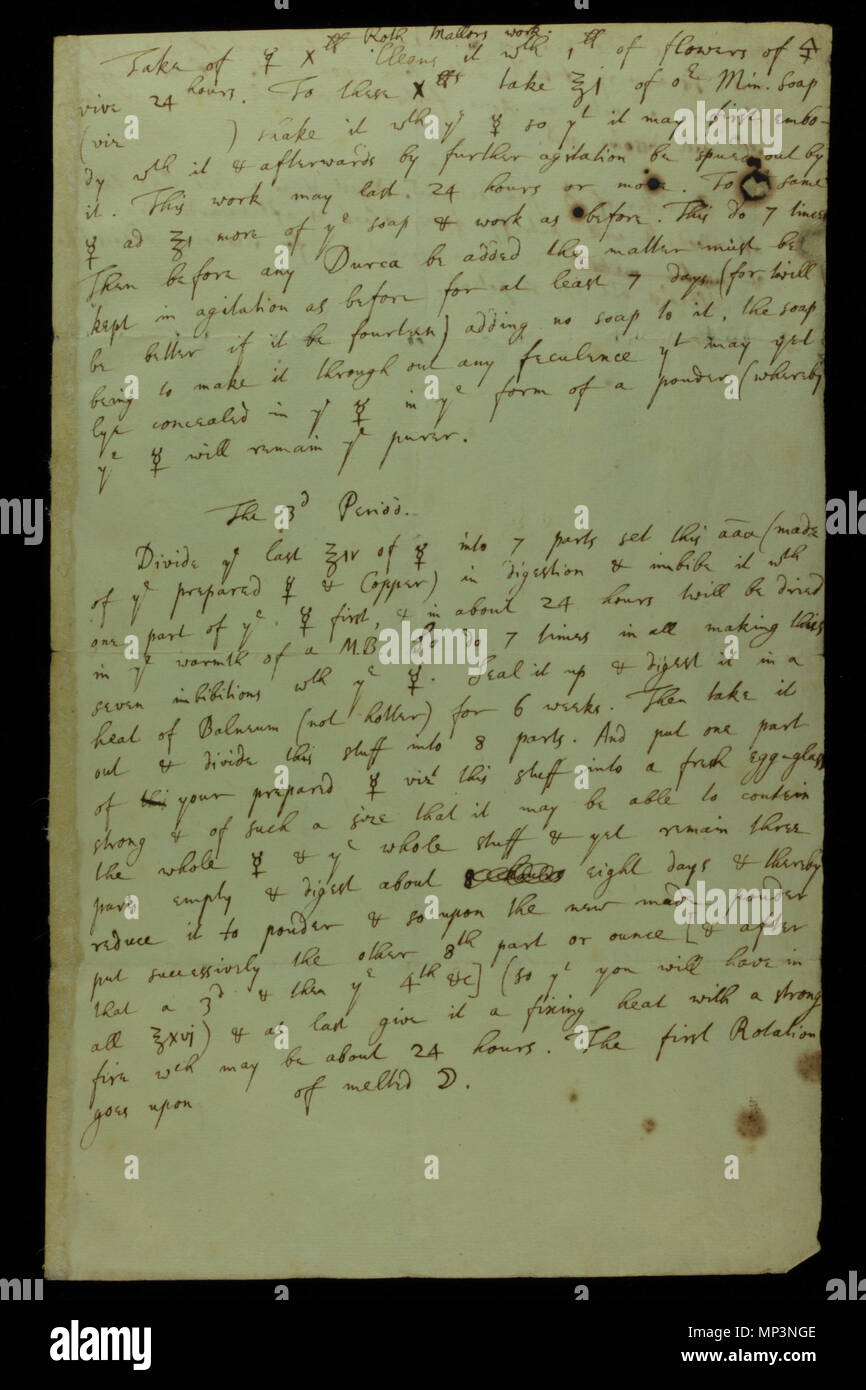 Roth Mallors work.
Take of ☿ X ℔ Cleans it wth 1 ℔ of flowers of 🜍
vive 24 hours. To these X ℔s take ℥j of oe Min. soap
(vizt ) shake it wth ye ☿ so yt it may first embo-
dy wth it & afterwards by further agitation be spued out by
it. This work may last 24 hours or more. To same
☿ ad ℥j more of ye soap & work as before. This do 7 times
Then before any Durca be added the matter must be
kept in agitation as before for at least 7 days (for twill
be better if it be fourteen) adding no soap to it, the soap
being to make it through out any feculence yt may yet
lye concealed in ye ☿ in ye form of a pouder (whereby
ye ☿ will remain ye purer.
The 3d Period.
Divide ye last ℥iv of ☿ into 7 parts set this āāā (made
of ye prepared ☿ & Copper) in digestion & imbibe it wth
one part of ye ☿ first, & in about 24 hours twill be dried
in ye warmth of a M.B. So do 7 times in all making this
seven imbibitions wth ye ☿. Seal it up & digest it in a
heat of Balneum (not hotter) for 6 weeks. Then take it
out & divide this stuff into 8 parts. And put one part
of your prepared ☿ vizt this stuff into a fresh egg-glass
strong & of such a size that it may be able to contein
the whole ☿ & ye whole stuff & yet remain three
parts empty & digest about eight days & thereby
reduce it to pouder & so upon the new made pouder
put successively the other 8th part or ounce [& after
that a 3d & then ye 4th &c] (so yt you will have in
all ℥xvj) & at last give it a fixing heat with a strong
fire wch may be about 24 hours. The first Rotation
goes upon of melted ☽.
alamy
a
Image ID: MP3NGE
www.alamy.com